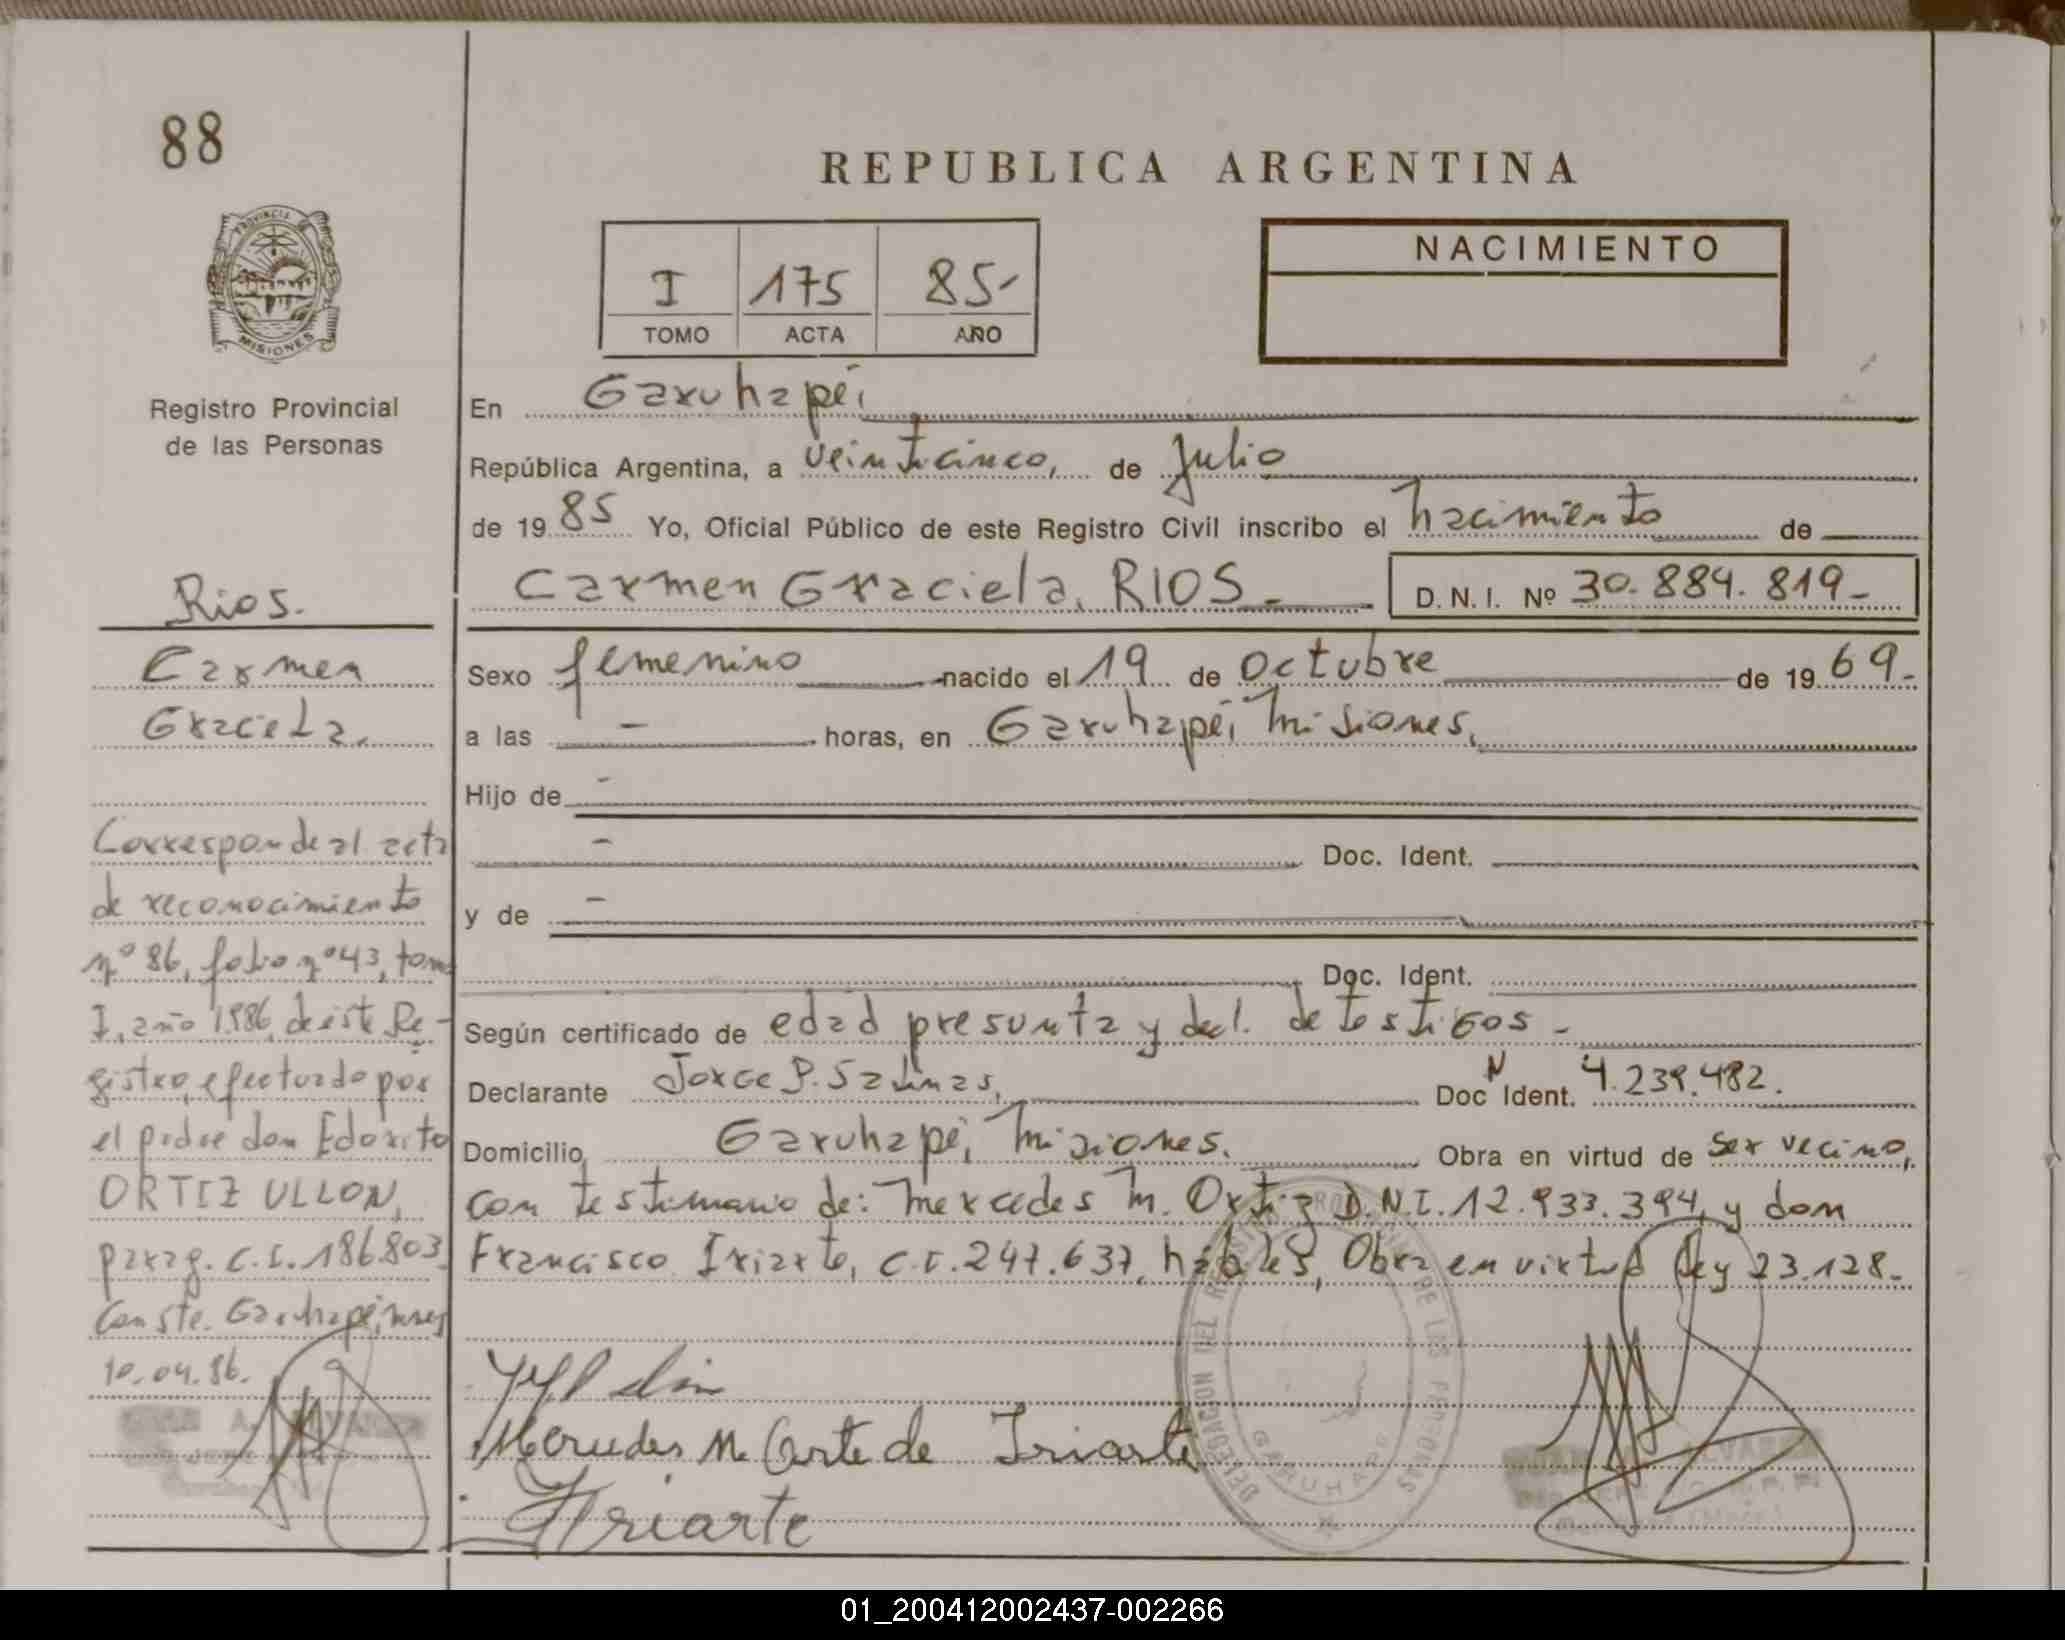 88
REPUBLICA ARGENTINA
PROVINCIA
MISIONES
I 175 85-
TOMO ACTA AÑO
NACIMIENTO
Registro Provincial
de las Personas
Rios.
Carmen
Graciela.
Corresponde al acta
de reconocimiento
nº 86, folio nº 43, tomo
I, año 1986, de este Re-
gistro, efectuado por
el padre don Edoxito
ORTIZ ULLON,
parag. C.I. 186.803
Conste. Garuhapé, mnes
10.04.86.
En Garuhapé,
República Argentina, a veinticinco, de Julio
de 19 85 Yo, Oficial Público de este Registro Civil inscribo el nacimiento de
Carmen Graciela, RIOS.- D.N.I. Nº 30.884.819-
Sexo femenino nacido el 19 de Octubre de 19 69.-
a las - horas, en Garuhapé, Misiones,
Hijo de -
- Doc. Ident.
y de -
Doc. Ident.
Según certificado de edad presunta y decl. de testigos -
Declarante Jorge P. Salinas, Doc N Ident. 4.239.482.
Domicilio Garuhapé, Misiones. Obra en virtud de ser vecino,
con testimonio de: Mercedes M. Ortiz D.N.I. 12.933.394, y don
Francisco Iriarte, C.I. 247.637, hábiles, Obra en virtud ley 23.128.-
Mercedes M Orte de Iriarte
Iriarte
DELEGACION DEL REGISTRO PROVINCIAL DE LAS PERSONAS
GARUHAPE
01_200412002437-002266